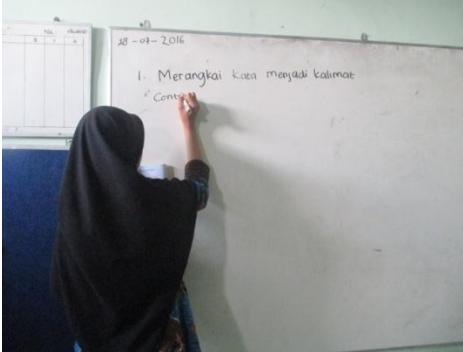 28-07-2016
1. Merangkai kata menjadi kalimat